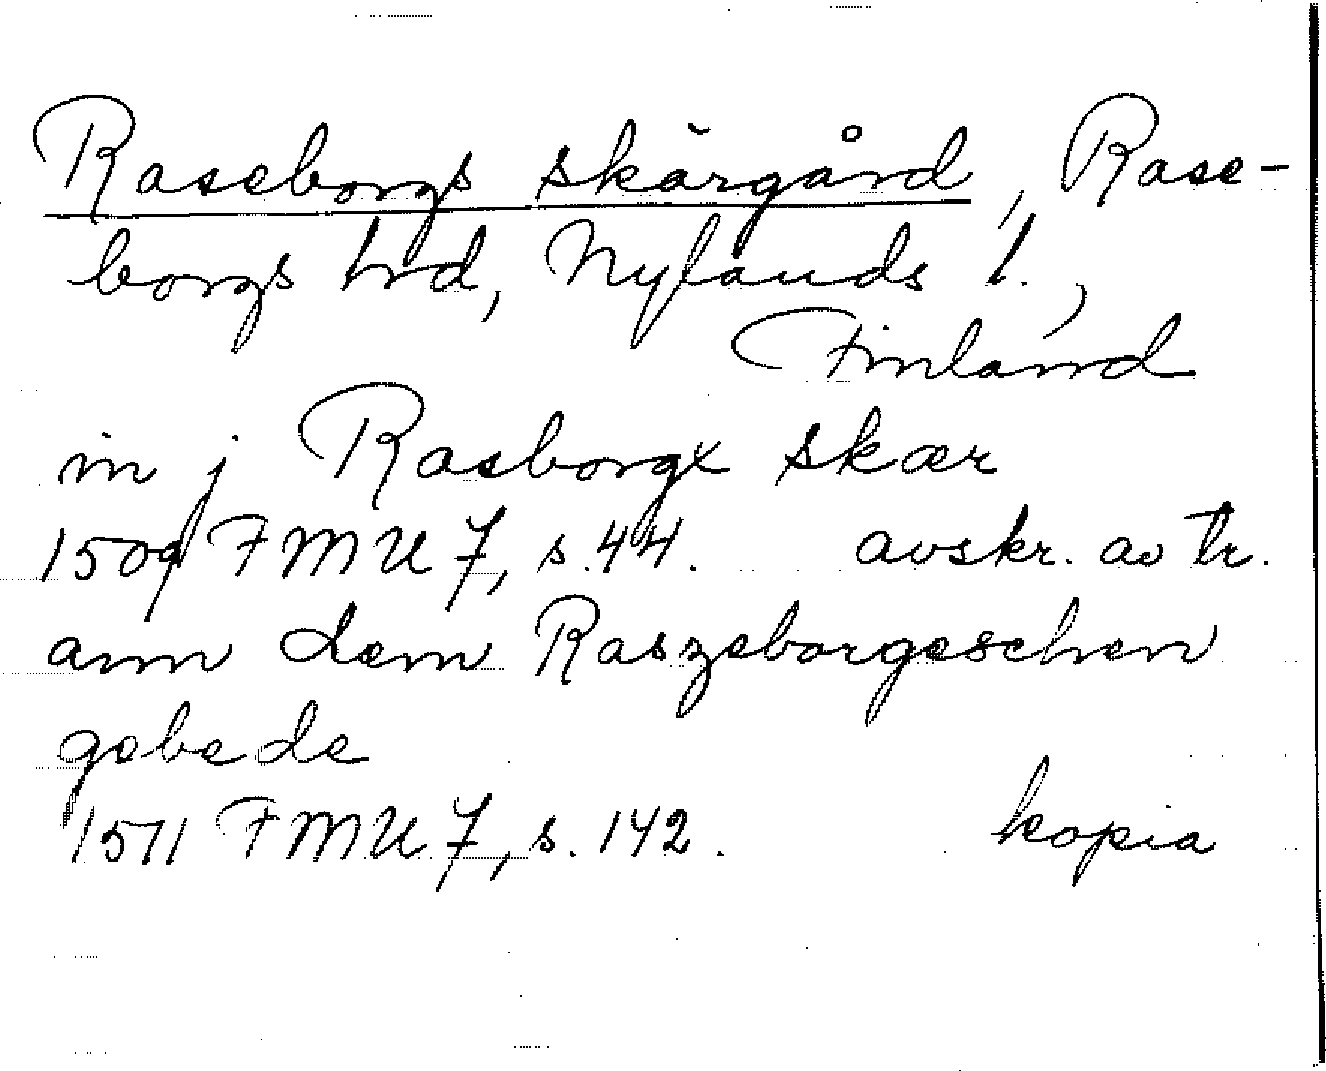 Raseborgs skärgård, Rase-
borgs hrd, Nylands l.,
Finland
in j Rasborgx skær
1509 FMU 7, s. 44. avskr. av tr.
ann dem Raszeborgeschen
gebede
1511 FMU 7, s. 142. kopia